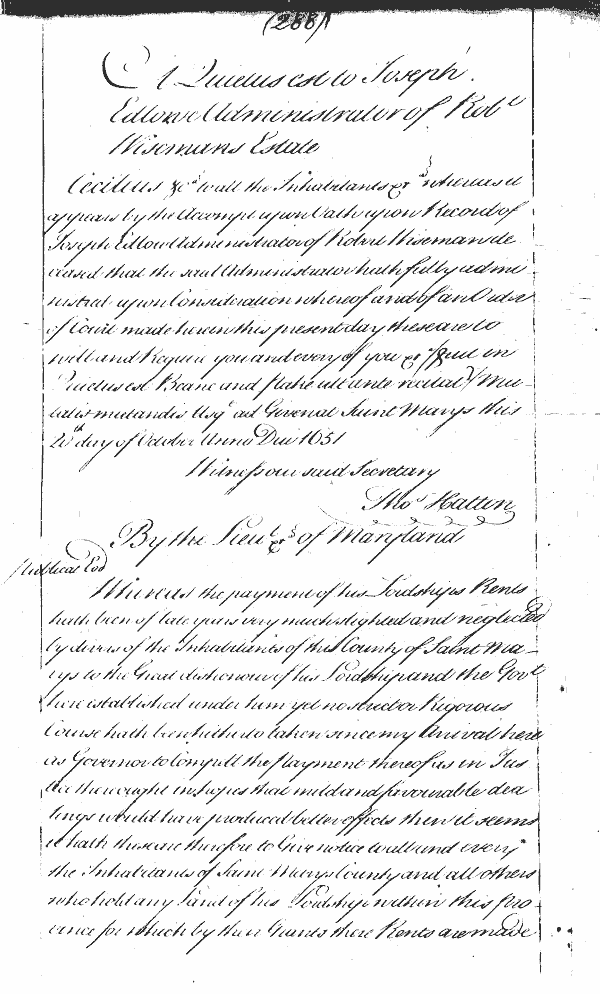 (288)
A Quietus est to Joseph
Edlowe Administrator of Robt
Wisemans Estate
Cecilius &c to all the Inhabitants &c whereas it
appears by the Accompt upon Oath upon Record of
Joseph Edlow Administrator of Robert Wiseman de
ceased that the said Administrator hath fully admi
nistred upon Consideration whereof and of an Order
of Court made herein this present day these are to
will and Require you and every of you &c
Quietus est
mutandis Usqe ad Given at Saint Marys this
20th day of October Anno Dni 1651
Witness our said Secretary
Thos Hatton
By the Lieut &c of Maryland
Whereas the payment of his Lordships Rents
hath been of late years very much slighted and neglected
by divers of the Inhabitants of this County of Saint Ma-
rys to the Great dishonour of his Lordship and the Govt
here established under him yet no strict or Rigorous
Course hath been hitherto taken since my Arrival here
as Governor to Compell the payment thereof as in Jus
tice they ought in hopes that mild and favourable dea
lings would have produced better effects then it seems
it hath these are therefore to Give notice to all and every
the Inhabitants of Saint Marys County and all others
who hold any Land of his Lordship within this Pro-
vince for which by their Grants there Rents are made